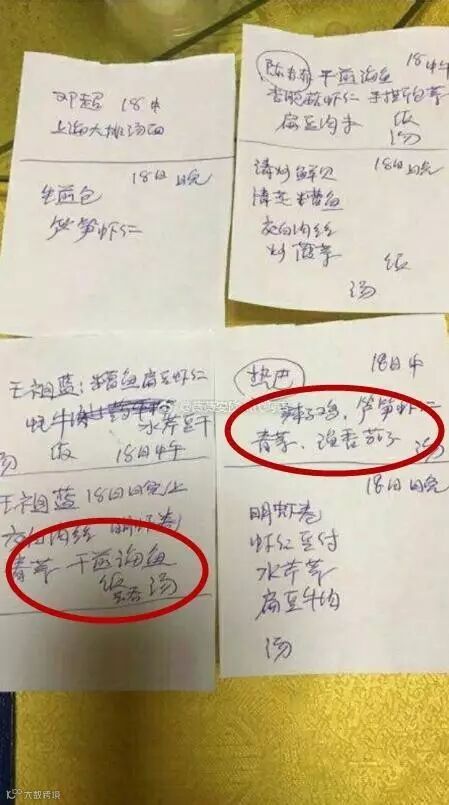 邓超 18中
上海大排汤面
18日晚
生煎包
芦笋虾仁
干煎海鱼 18中午
虾仁
扁豆肉末 饭
汤
清炒鲜贝 18日晚
糟鱼
茭白肉丝
炒菠菜 饭
汤
王祖蓝:糟鱼 扁豆虾仁
水芹豆干
汤 饭 18日中午
王祖蓝 18日日晚上
茭白肉丝 明虾卷
青菜 干煎海鱼
饭 汤
热巴 18日中
辣子鸡、芦笋虾仁
青菜、鱼香茄子 汤
18日晚
明虾卷
虾仁豆付
水芹菜
扁豆牛肉
汤
大数跨境